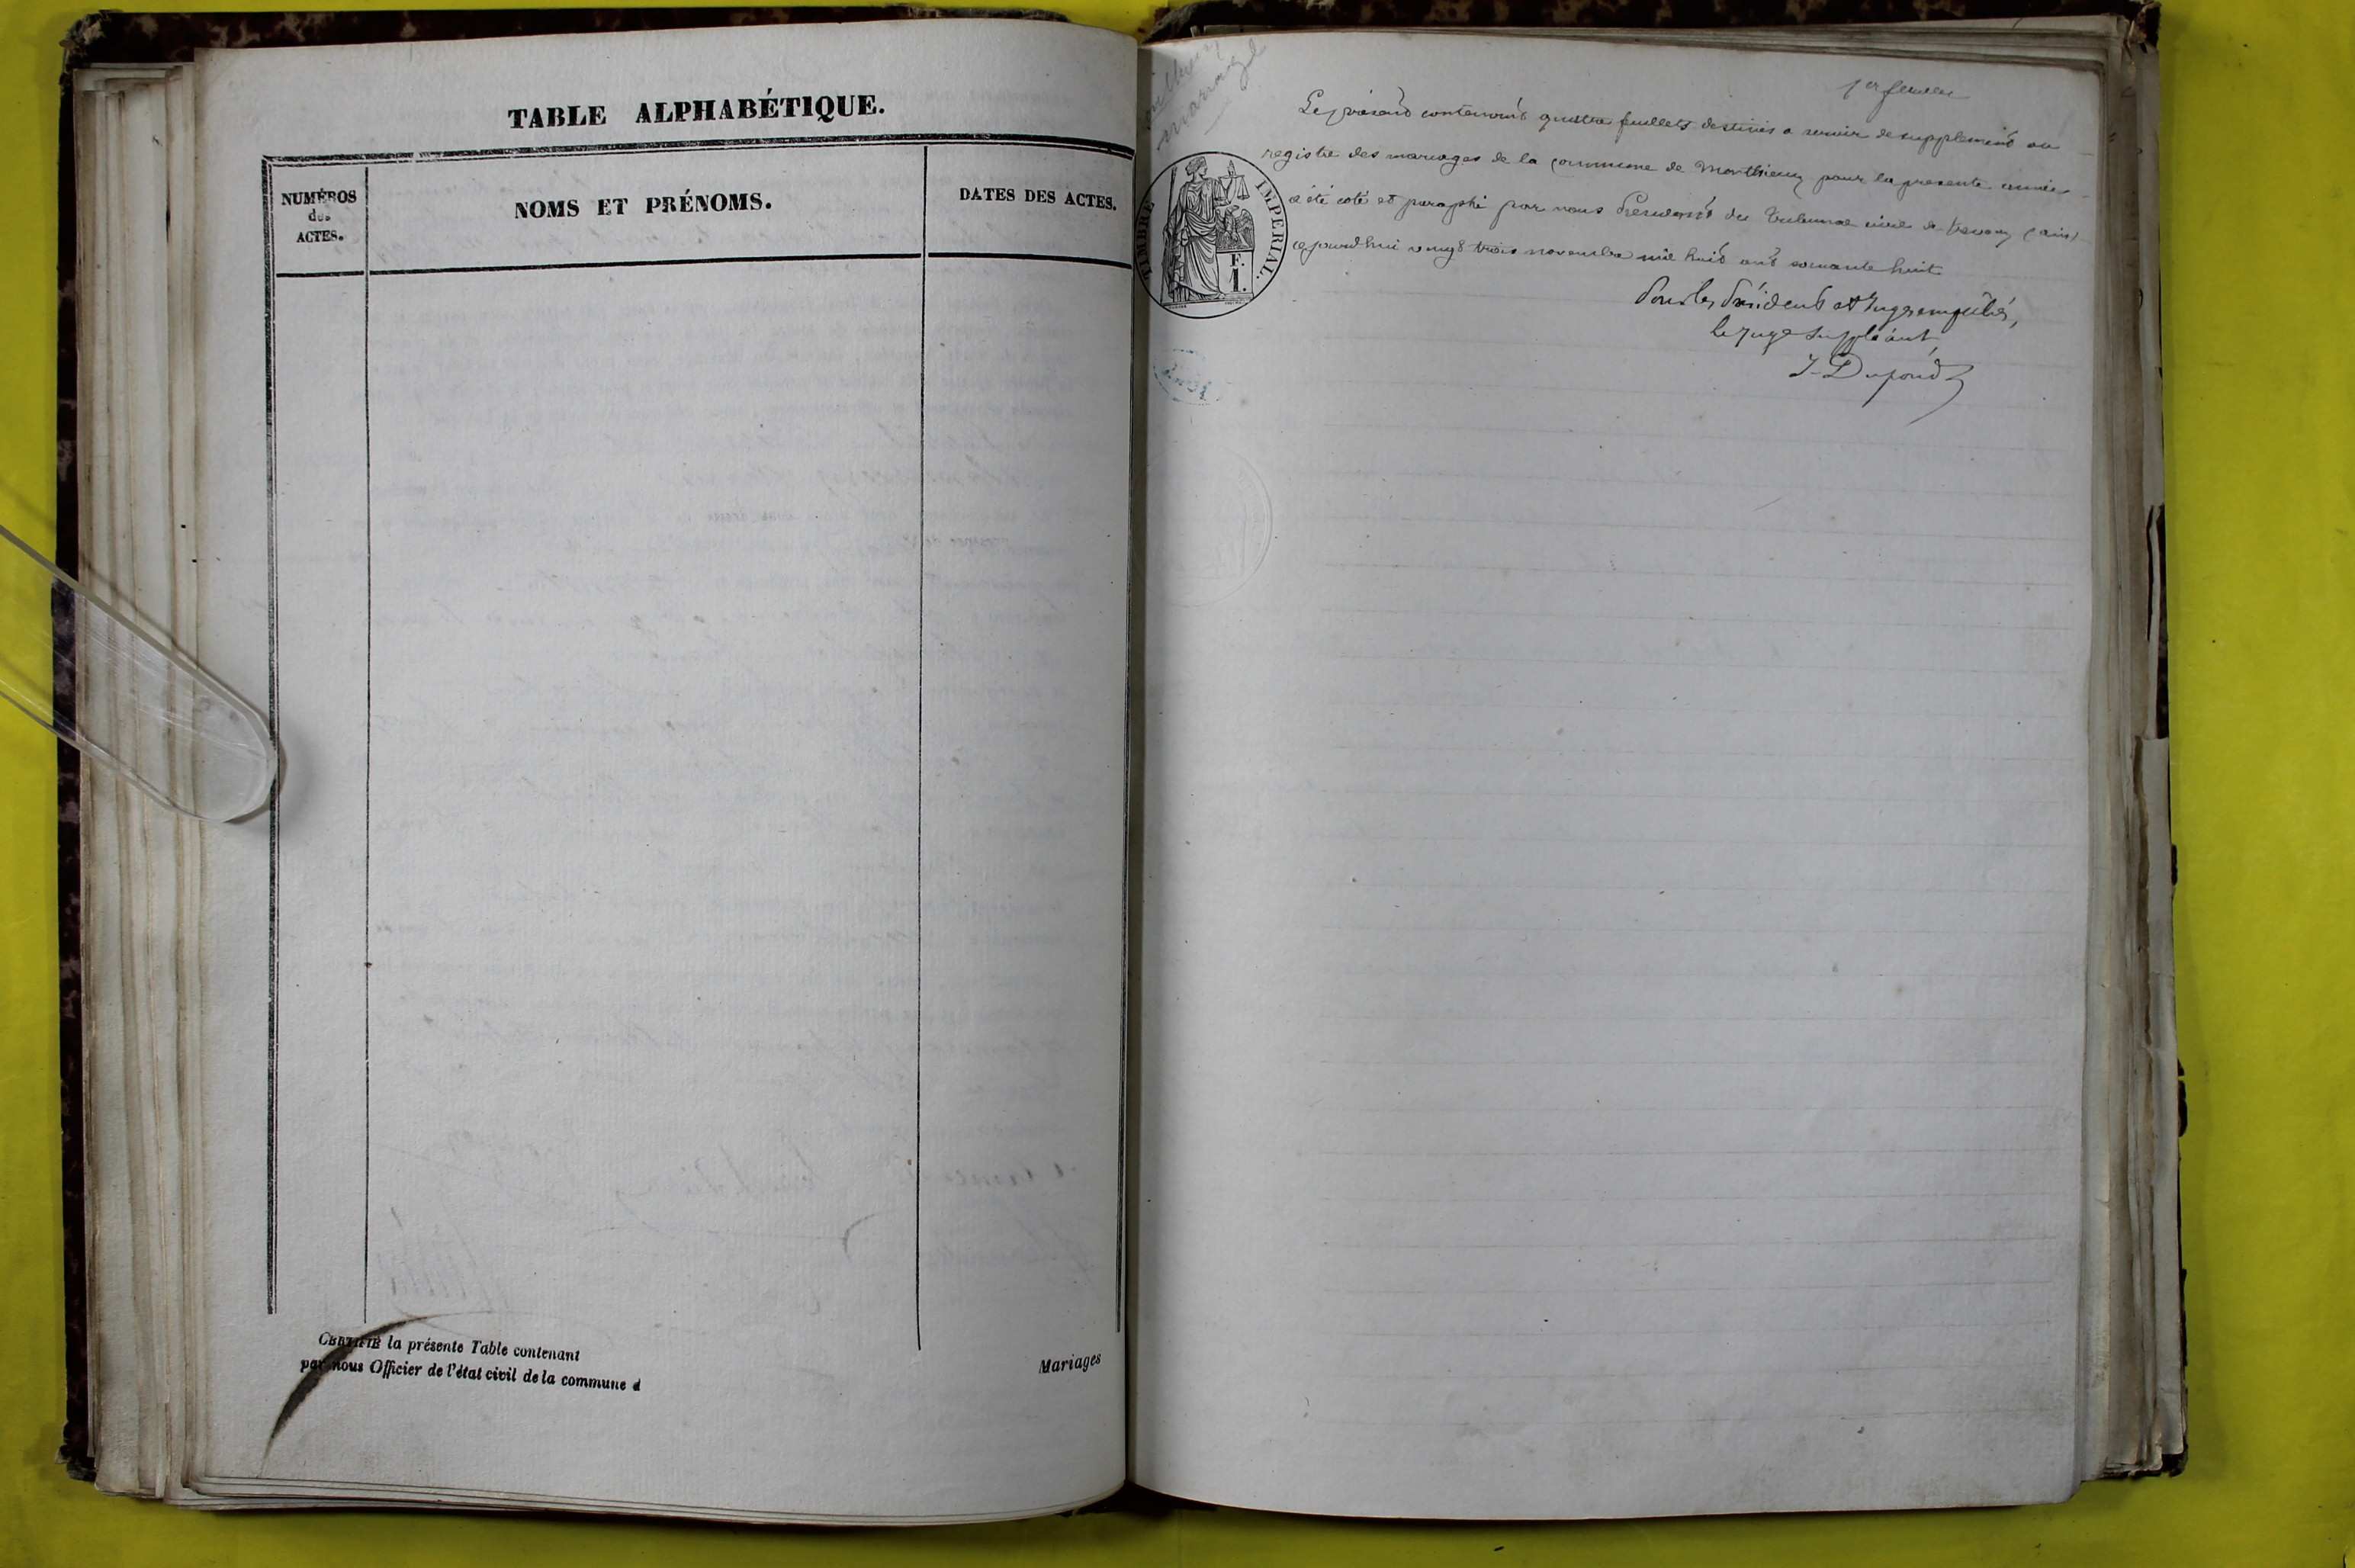 TABLE ALPHABÉTIQUE.
NUMÉROS
des
ACTES.
NOMS ET PRÉNOMS.
DATES DES ACTES.
CERTIFIÉ la présente Table contenant
par nous Officier de l'état civil de la commune d
Mariages
mariage
1er feuillet
TIMBRE IMPERIAL.
F.
1.
Le présent contenant quatre feuillets destinés a servir de supplement au
registre des mariages de la commune de Monthieux pour la presente année
a été coté et paraphé par nous President du Tribunal civil de Trevoux (ain)
cejourd'hui vingt trois novembre mil huit cent soixante huit
Pour les Président et Juges empêchés,
le Juge Suppléant
J. Dupond